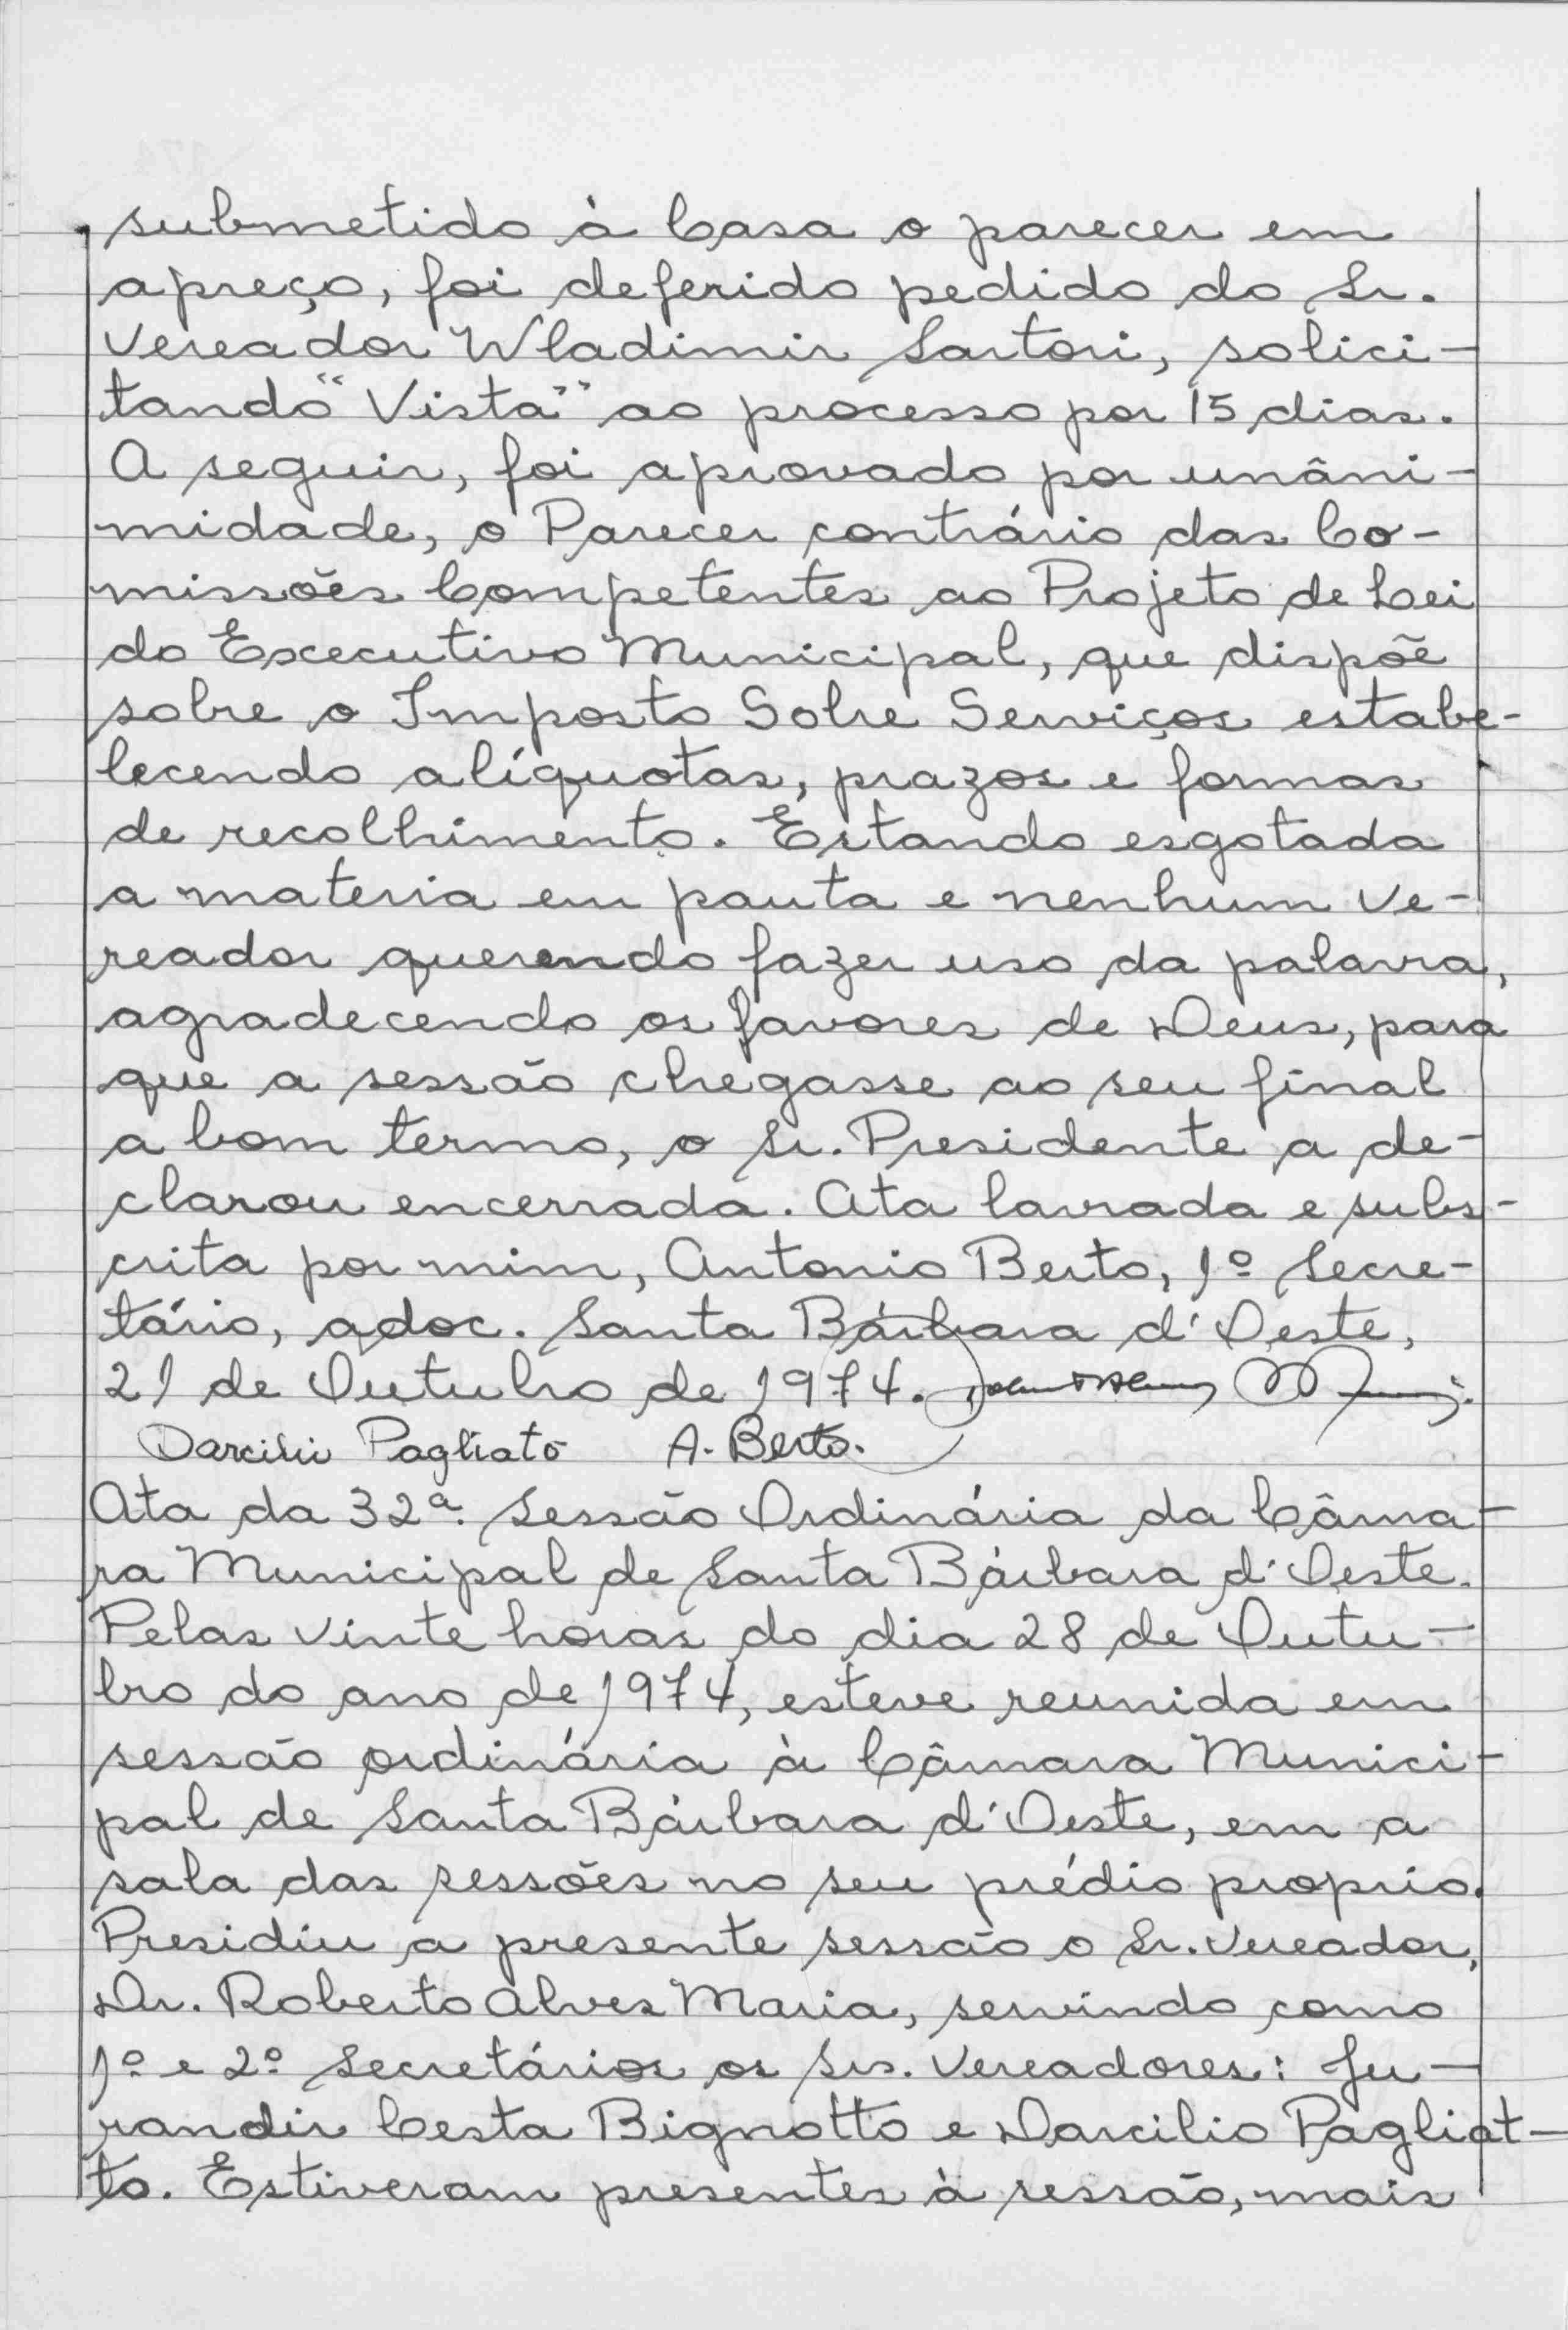 submetido à Casa o parecer em
apreço, foi deferido pedido do Sr.
Vereador Wladimir Sartori, solici-
tando "Vista" ao processo por 15 dias.
A seguir, foi aprovado por unâni-
midade, o Parecer contrário das Co-
missões Competentes ao Projeto de Lei
do Executivo Municipal, que dispõe
sobre o Imposto Sobre Serviços estabe-
lecendo alíquotas, prazos e formas
de recolhimento. Estando esgotada
a materia em pauta e nenhum ve-
reador querendo fazer uso da palavra,
agradecendo os favores de Deus, para
que a sessão chegasse ao seu final
a bom termo, o Sr. Presidente a de-
clarou encerrada. Ata lavrada e subs-
crita por mim, Antonio Berto, 1º Secre-
tário, adoc. Santa Bárbara d'Oeste,
21 de Outubro de 1974.
Darcilio Pagliato A. Berto.
Ata da 32ª Sessão Ordinária da Câma-
ra Municipal de Santa Bárbara d'Oeste.
Pelas vinte horas do dia 28 de Outu-
bro do ano de 1974, esteve reunida em
sessão ordinária à Câmara Munici-
pal de Santa Bárbara d'Oeste, em a
sala das sessões no seu prédio proprio.
Presidiu a presente sessão o Sr. Vereador,
Dr. Roberto Alves Maria, servindo como
1º e 2º Secretários os Srs. Vereadores: Ju-
randir Cesta Bignotto e Darcilio Pagliat-
to. Estiveram presentes à sessão, mais